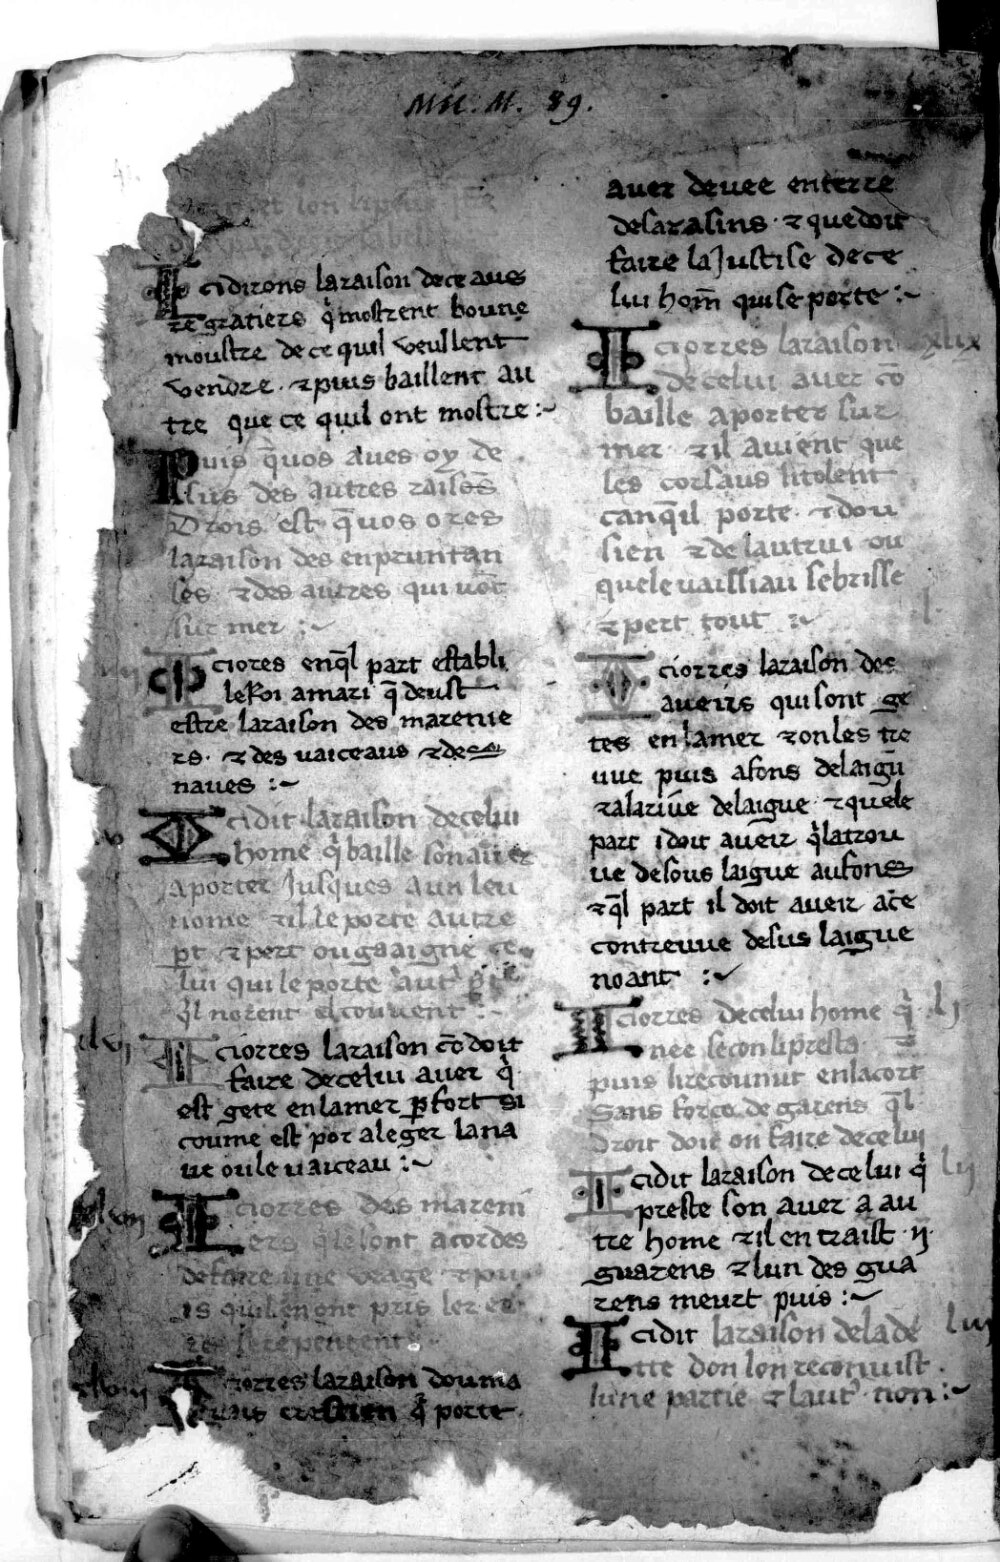 Mu. M. 89.
lon
I ci dirons la raison de ce aues
re gratiers q̃ mostrent boune
moustre de ce quil veullent
vendre ⁊ puis baillent au
tre que ce quil ont mostre :~
Puis q̃ uos aues oy de
plus des autres raisõs
Drois est q̃ uos ores
la raison des enpruntan
ses ⁊ des autres qui uõt
sur mer :~
I ci ores en q̃l part establi
le Roi amari q̃ deust
estre la raison des marenie
rs · ⁊ des uaiceaus ⁊ des
naues :~
I ci dit la raison de celui
home q̃ baille son auer
a porter Jusques a un leu
nome ⁊ il le porte autre
p̱t ⁊ pert ou gaaigne ce
lui qui le porte aut̃
q̃l norent el couuent :~
xlvi
I ci orres la raison cõ doit
faire de celui auer q̃
est gete en la mer p̱ fort si
coume est por aleger la na
ue ou le uaiceau :~
xlvii
I ci orres des mareni
ers q̃ se sont acordes
de faire une veage ⁊ pu
is quil en ont pris ler er
res se repentent
xlviii
I ci orres la raison dou ma
uais crestien q̃ porte
auer deuee en terre
de sarasins · ⁊ que doit
faire la Justise de ce
lui hom̃ qui se porte :~
I ci orres la raison xlix
de celui auer cõ
baille a porter sur
mer ⁊ il auient que
les corsaus li tolent
can q̃ il porte ⁊ dou
sien ⁊ de lautrui ou
que le uaissiau se brisse
⁊ pert tout :~ l
I ci orres la raison des
aueirs qui sont ge
tes en la mer ⁊ on les tre
uue puis a fons de laigũ
⁊ a la riue de laigue ⁊ que le
part i doit aueir q̃ la trou
ue de sous laigue au fons
⁊ q̃l part il doit aueir a ce
con treuue desus laigue
noant :~
I ci orres de celui home q̃ lj
nee se con li presta
puis li recounut en la cort
sans force de garens q̃l
droit doit on faire de celui
I ci dit la raison de celui q̃ lij
preste son auer a au
tre home ⁊ il en traist ij
guarens ⁊ lun des gua
rens meurt puis :~
I ci dit la raison de la de liij
tte don lon reconuist
lune partie ⁊ laut̃ non :~